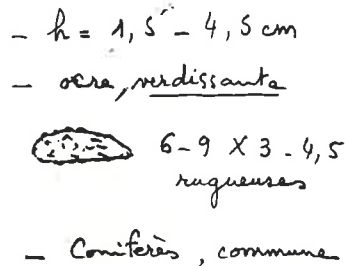 - h = 1,5 - 4,5 cm
- ocre, verdissante
6-9 X 3-4,5
rugueuses
- Conifères, commune